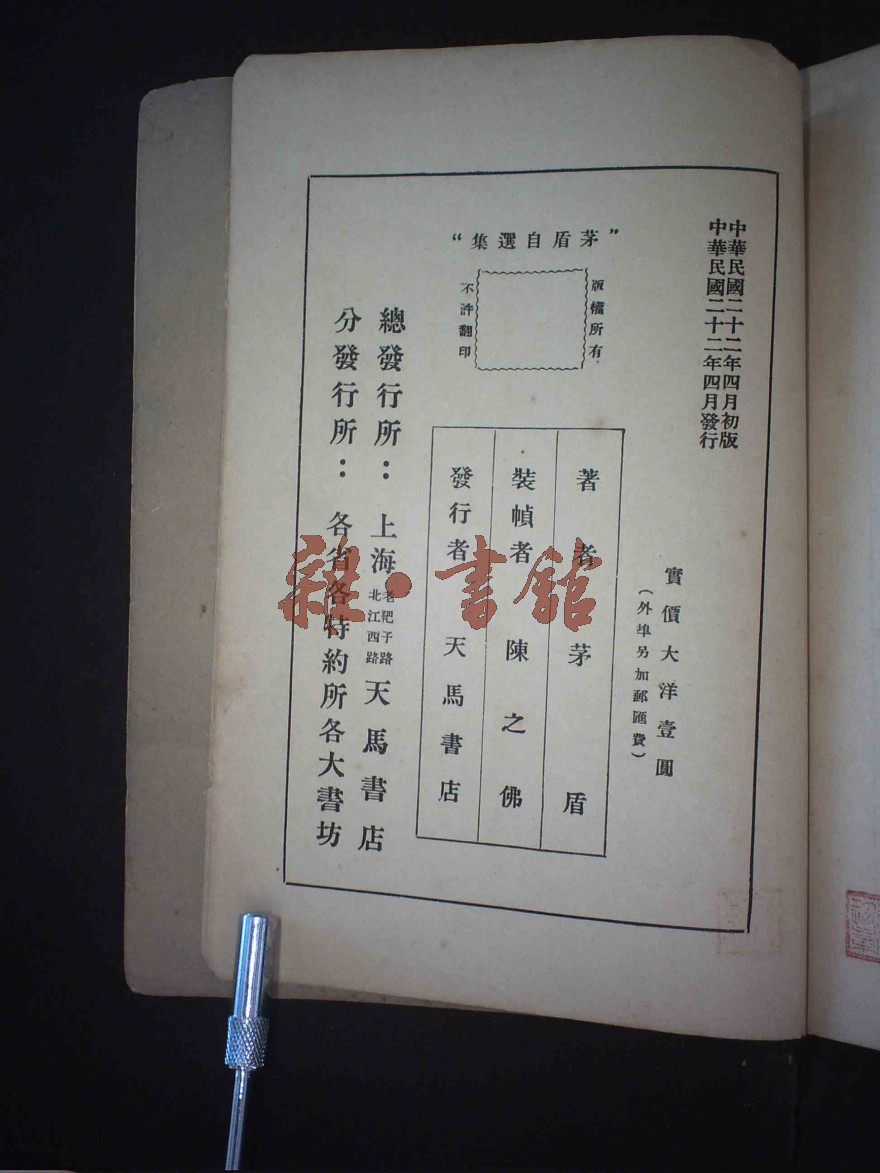 中華民國二十二年四月初版
中華民國二十二年四月發行
實價大洋壹圓
（外埠另加郵匯費）
“茅盾自選集”
版權所有
不許翻印
著者 茅盾
裝幀者 陳之佛
發行者 天馬書店
總發行所：上海 老靶子路 北江西路 天馬書店
分發行所：各省各特約所各大書坊
雜·書館